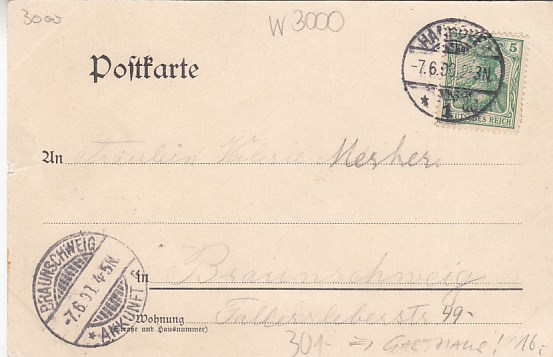 3000
W 3000
Postkarte
HANNOVER
-7.6.03. 2-3N.
* 1 *
5
DEUTSCHES REICH
An Fräulein
BRAUNSCHWEIG
-7.6.03. 4-5N.
* ANKUNFT.
in Braunschweig
Wohnung Fallersleberstr 49.
(Straße und Hausnummer)
301- => GASTHAUS! 16,-